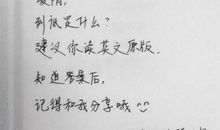 爱情，
到底是什么？
建议你读英文原版，
知道答案后，
记得和我分享哦